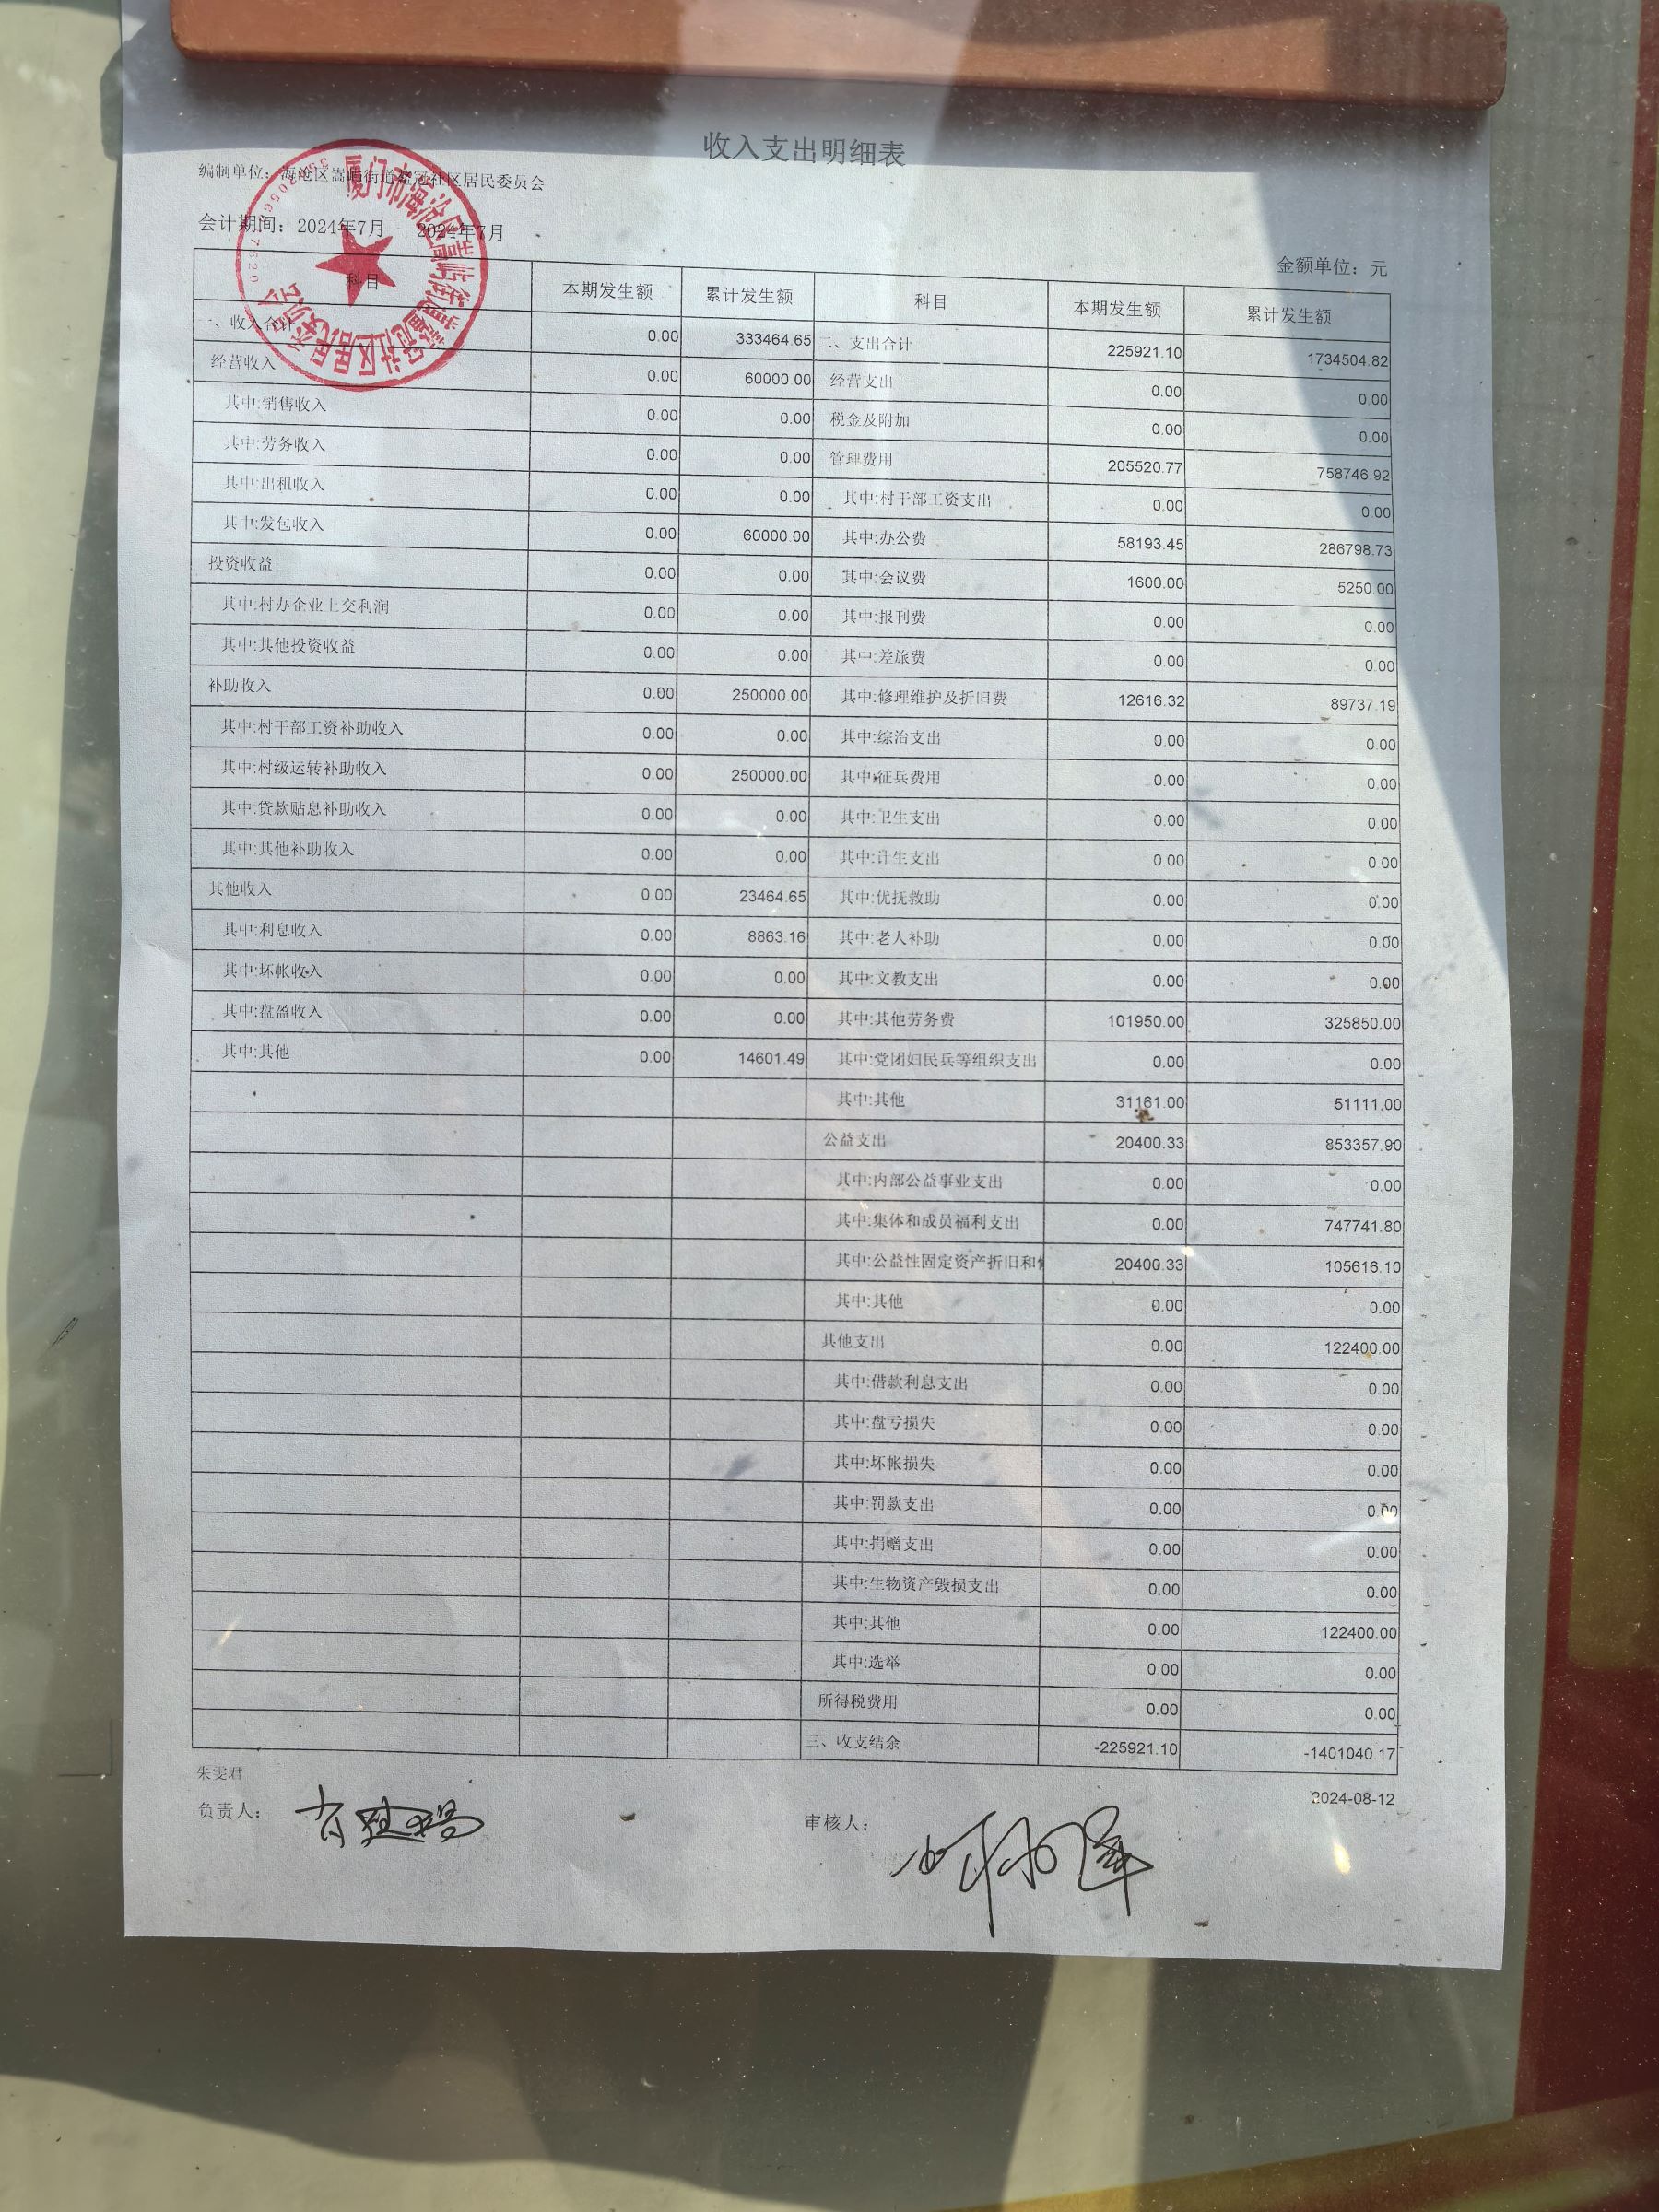 收入支出明细表
编制单位：海沧区嵩屿街道鳌冠社区居民委员会
会计期间：2024年7月 - 2024年7月
金额单位：元
厦门市海沧区嵩屿街道鳌冠社区居民委员会
科目 本期发生额 累计发生额 科目 本期发生额 累计发生额
一、收入合计 0.00 333464.65 二、支出合计 225921.10 1734504.82
经营收入 0.00 60000.00 经营支出 0.00 0.00
其中:销售收入 0.00 0.00 税金及附加 0.00 0.00
其中:劳务收入 0.00 0.00 管理费用 205520.77 758746.92
其中:出租收入 0.00 0.00 其中:村干部工资支出 0.00 0.00
其中:发包收入 0.00 60000.00 其中:办公费 58193.45 286798.73
投资收益 0.00 0.00 其中:会议费 1600.00 5250.00
其中:村办企业上交利润 0.00 0.00 其中:报刊费 0.00 0.00
其中:其他投资收益 0.00 0.00 其中:差旅费 0.00 0.00
补助收入 0.00 250000.00 其中:修理维护及折旧费 12616.32 89737.19
其中:村干部工资补助收入 0.00 0.00 其中:综治支出 0.00 0.00
其中:村级运转补助收入 0.00 250000.00 其中:征兵费用 0.00 0.00
其中:贷款贴息补助收入 0.00 0.00 其中:卫生支出 0.00 0.00
其中:其他补助收入 0.00 0.00 其中:计生支出 0.00 0.00
其他收入 0.00 23464.65 其中:优抚救助 0.00 0.00
其中:利息收入 0.00 8863.16 其中:老人补助 0.00 0.00
其中:坏帐收入 0.00 0.00 其中:文教支出 0.00 0.00
其中:盘盈收入 0.00 0.00 其中:其他劳务费 101950.00 325850.00
其中:其他 0.00 14601.49 其中:党团妇民兵等组织支出 0.00 0.00
其中:其他 31161.00 51111.00
公益支出 20400.33 853357.90
其中:内部公益事业支出 0.00 0.00
其中:集体和成员福利支出 0.00 747741.80
其中:公益性固定资产折旧和 20400.33 105616.10
其中:其他 0.00 0.00
其他支出 0.00 122400.00
其中:借款利息支出 0.00 0.00
其中:盘亏损失 0.00 0.00
其中:坏帐损失 0.00 0.00
其中:罚款支出 0.00 0.00
其中:捐赠支出 0.00 0.00
其中:生物资产毁损支出 0.00 0.00
其中:其他 0.00 122400.00
其中:选举 0.00 0.00
所得税费用 0.00 0.00
三、收支结余 -225921.10 -1401040.17
朱雯君
2024-08-12
负责人：
审核人：